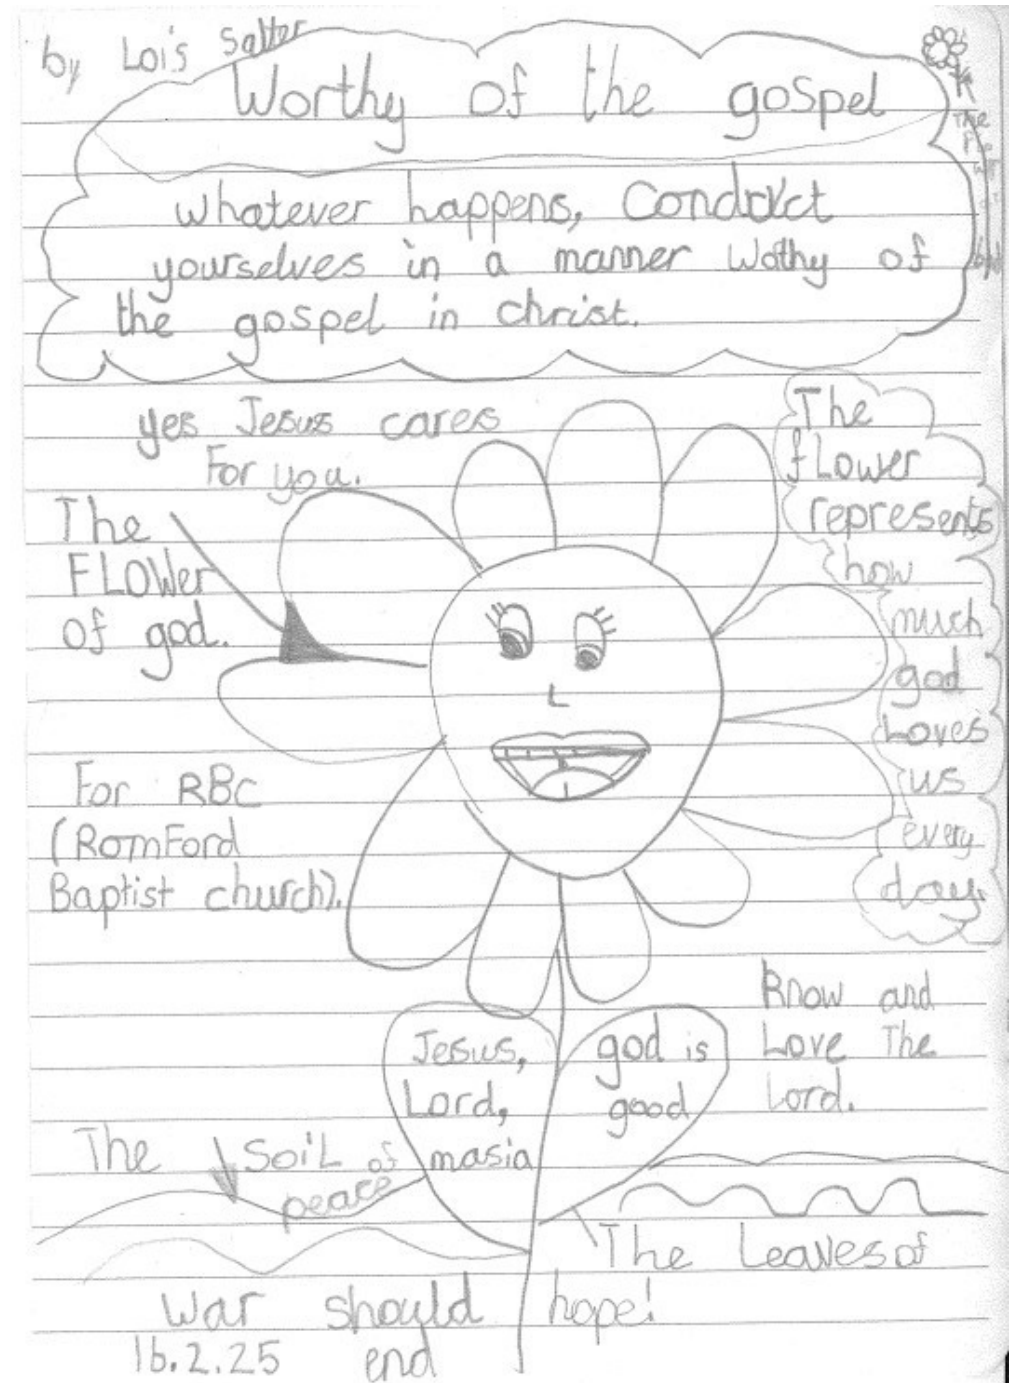 by Lois Salter
Worthy of the gospel
whatever happens, Conduct
yourselves in a manner Wothy of
the gospel in christ.
The
yes Jesus cares
For you.
The
FLOWer
of god.
The
fLower
represents
how
much
god
Loves
us
every
day.
For RBc
(RomFord
Baptist church).
Jesus,
Lord,
masia
god is
good
Know and
Love The
Lord.
The soiL of
peace
The Leaves of
hope!
War should
end
16.2.25